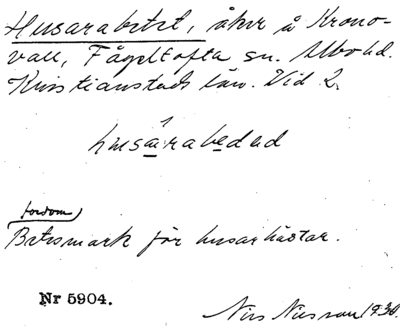 Husarabetet, åker å Krono-
vall, Fågeltofta sn. Albo hd.
Kristianstads län. Vid 2.
husarabedad
fordom
Betesmark för husarhästar.
Nr 5904.
Nils Nilsson 1930.